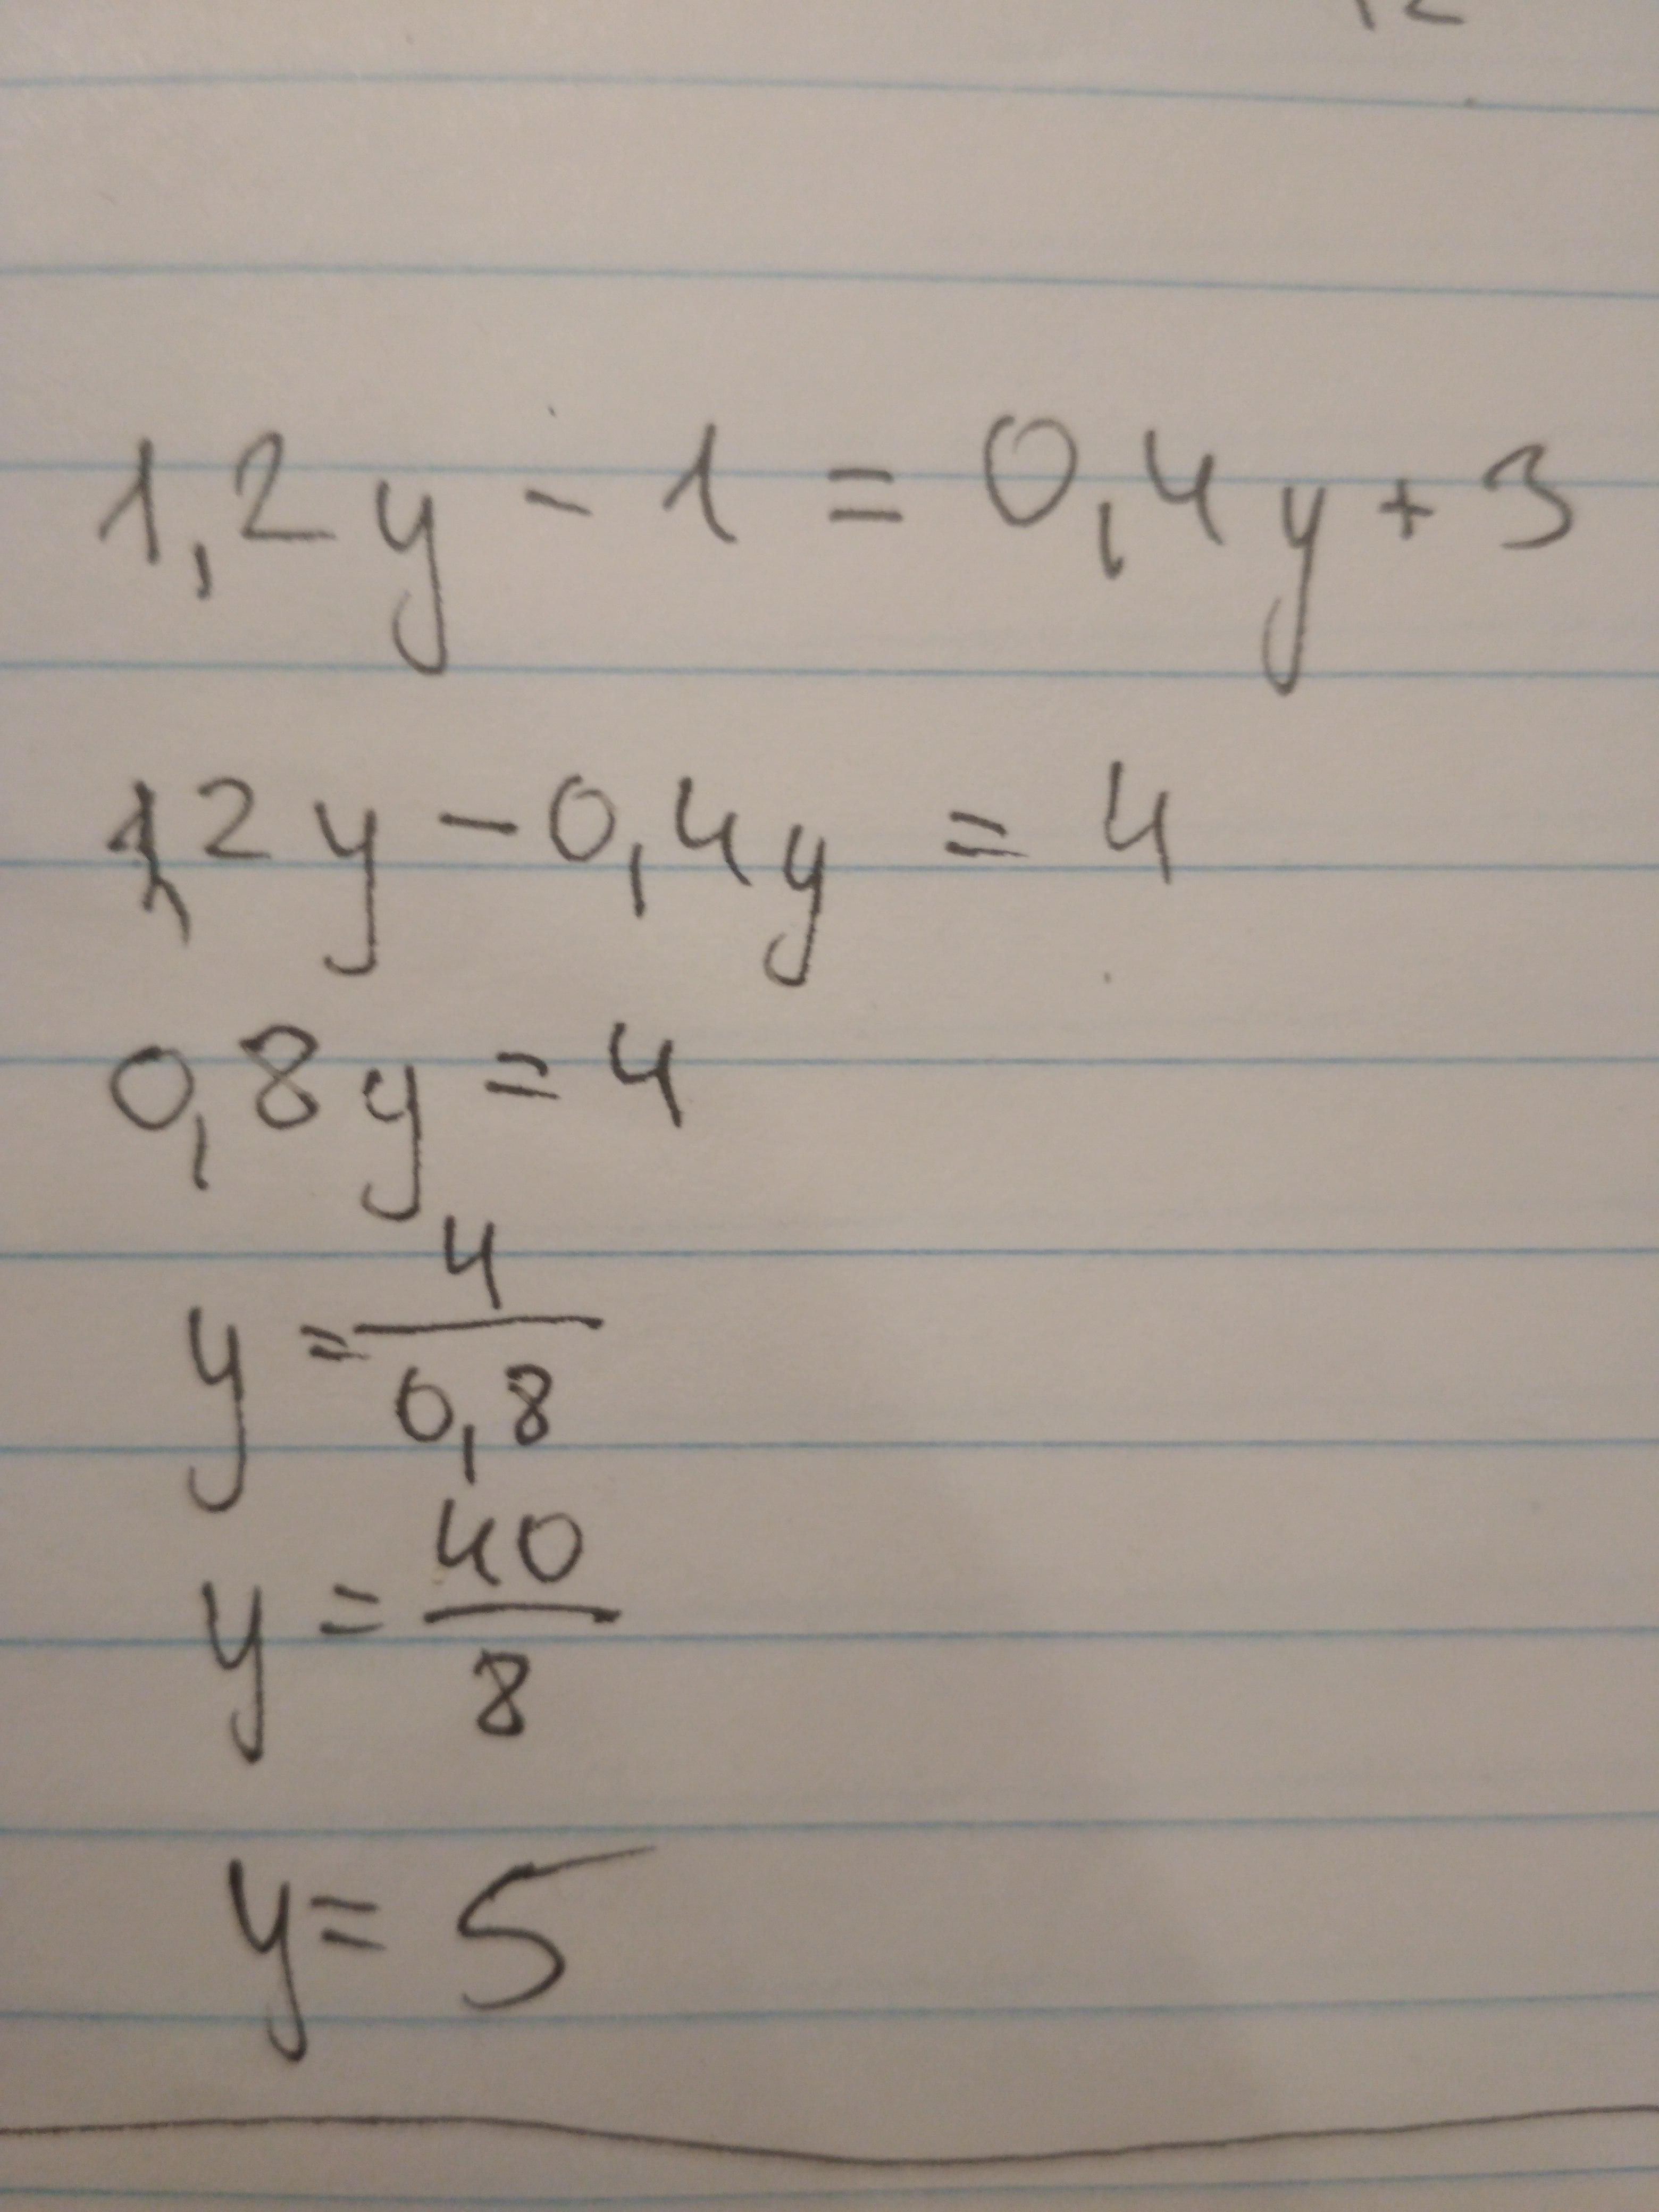 1,2y - 1 = 0,4y + 3
1,2y - 0,4y = 4
0,8y = 4
y = 4/0,8
y = 40/8
y = 5